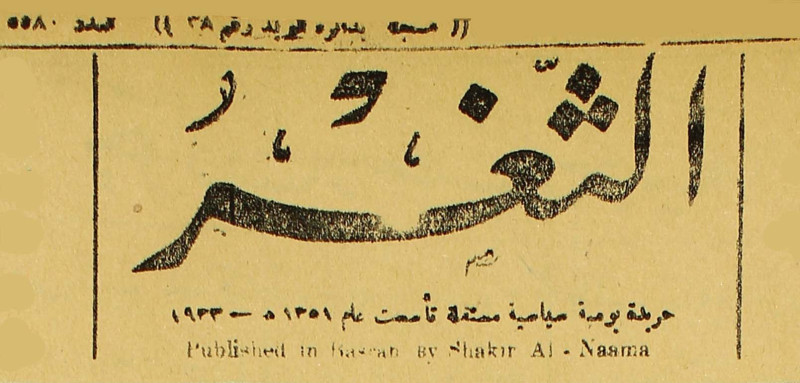 (( مسجلة بدائرة البريد رقم ٣٨ )) العدد ٥٥٨٠
الثّغر
جريدة يومية سياسية مستقلة تأسست عام ١٣٥١ هـ — ١٩٣٣
Published in Basrah By Shakir Al - Naama